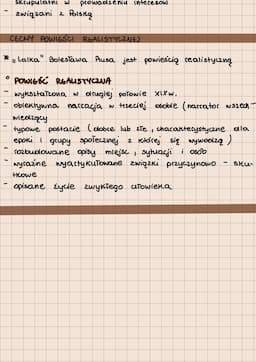 skrupulatni w prowadzeniu interesów
- związani z Polską
CECHY POWIEŚCI REALISTYCZNEJ
* "Lalka" Bolesława Prusa jest powieścią realistyczną
° POWIEŚĆ REALISTYCZNA
- wykształtowana w drugiej połowie XIX w.
- obiektywna narracja w trzeciej osobie (narrator wszech-
wiedzący
- typowe postacie (dobre lub złe, charakterystyczne dla
epoki i grupy społecznej z której się wywodzą)
- rozbudowane opisy miejsc, sytuacji i osób
- wyraźne wyartykułowane związki przyczynowo - sku-
tkowe
- opisane życie zwykłego człowieka